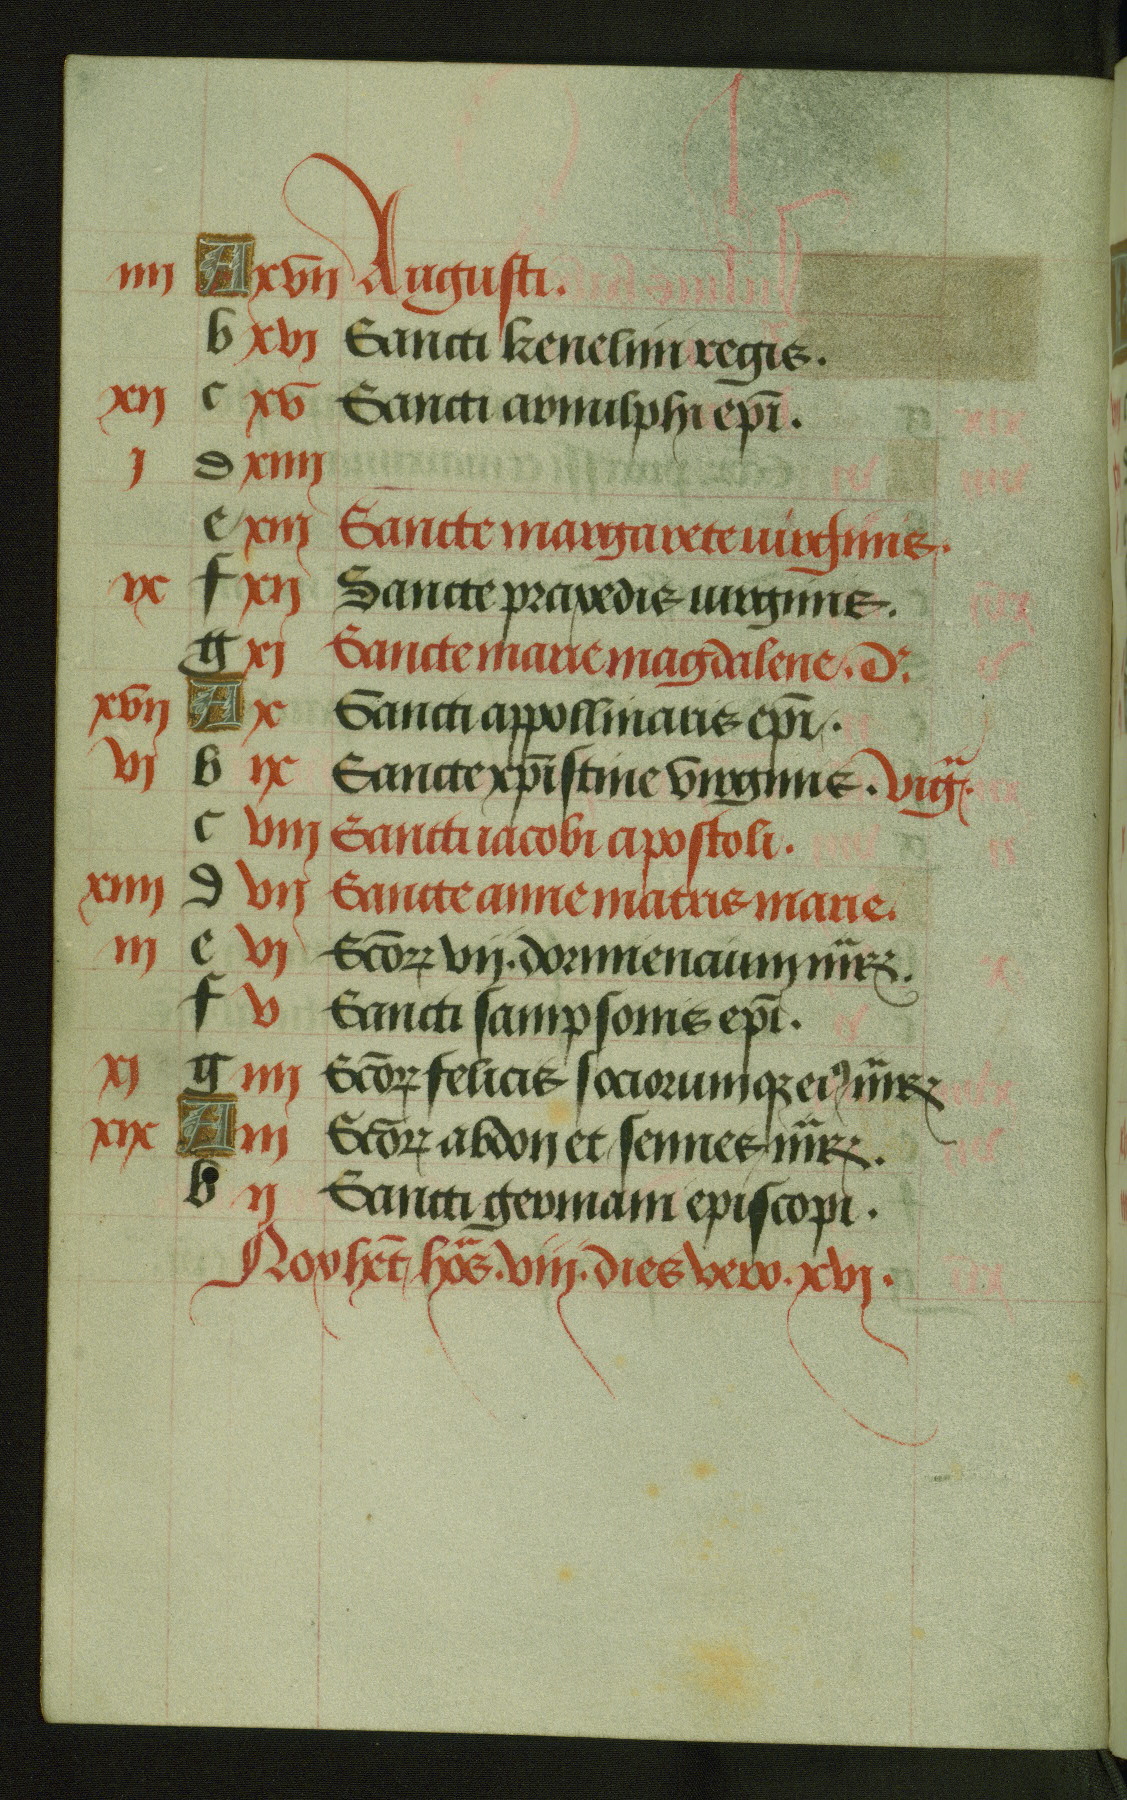 iiij A xvij Augusti.
b xvj Sancti kenelmi regis.
xij c xv Sancti arnulphi ep̄i.
j d xiiij
e xiij Sancte margarete uirginis.
ix f xij Sancte praxedis uirginis.
g xj Sancte marie magdalene. D.
xvij A x Sancti appollinaris ep̄i.
vj b ix Sancte xp̄istine virginis. vigª.
c viij Sancti iacobi apostoli.
xiiij d vij Sancte anne matris marie.
iij e vj Sc̄oꝝ vij. dormiencium mr̄ꝝ.
f v Sancti sampsonis ep̄i.
xj g iiij Sc̄oꝝ felicis sociorumqꝫ eiꝰ mr̄ꝝ
xix A iij Sc̄oꝝ abdon et sennes mr̄ꝝ.
b ij Sancti germani episcopi.
Nox hēt hōs. viij. dies vero. xvj.